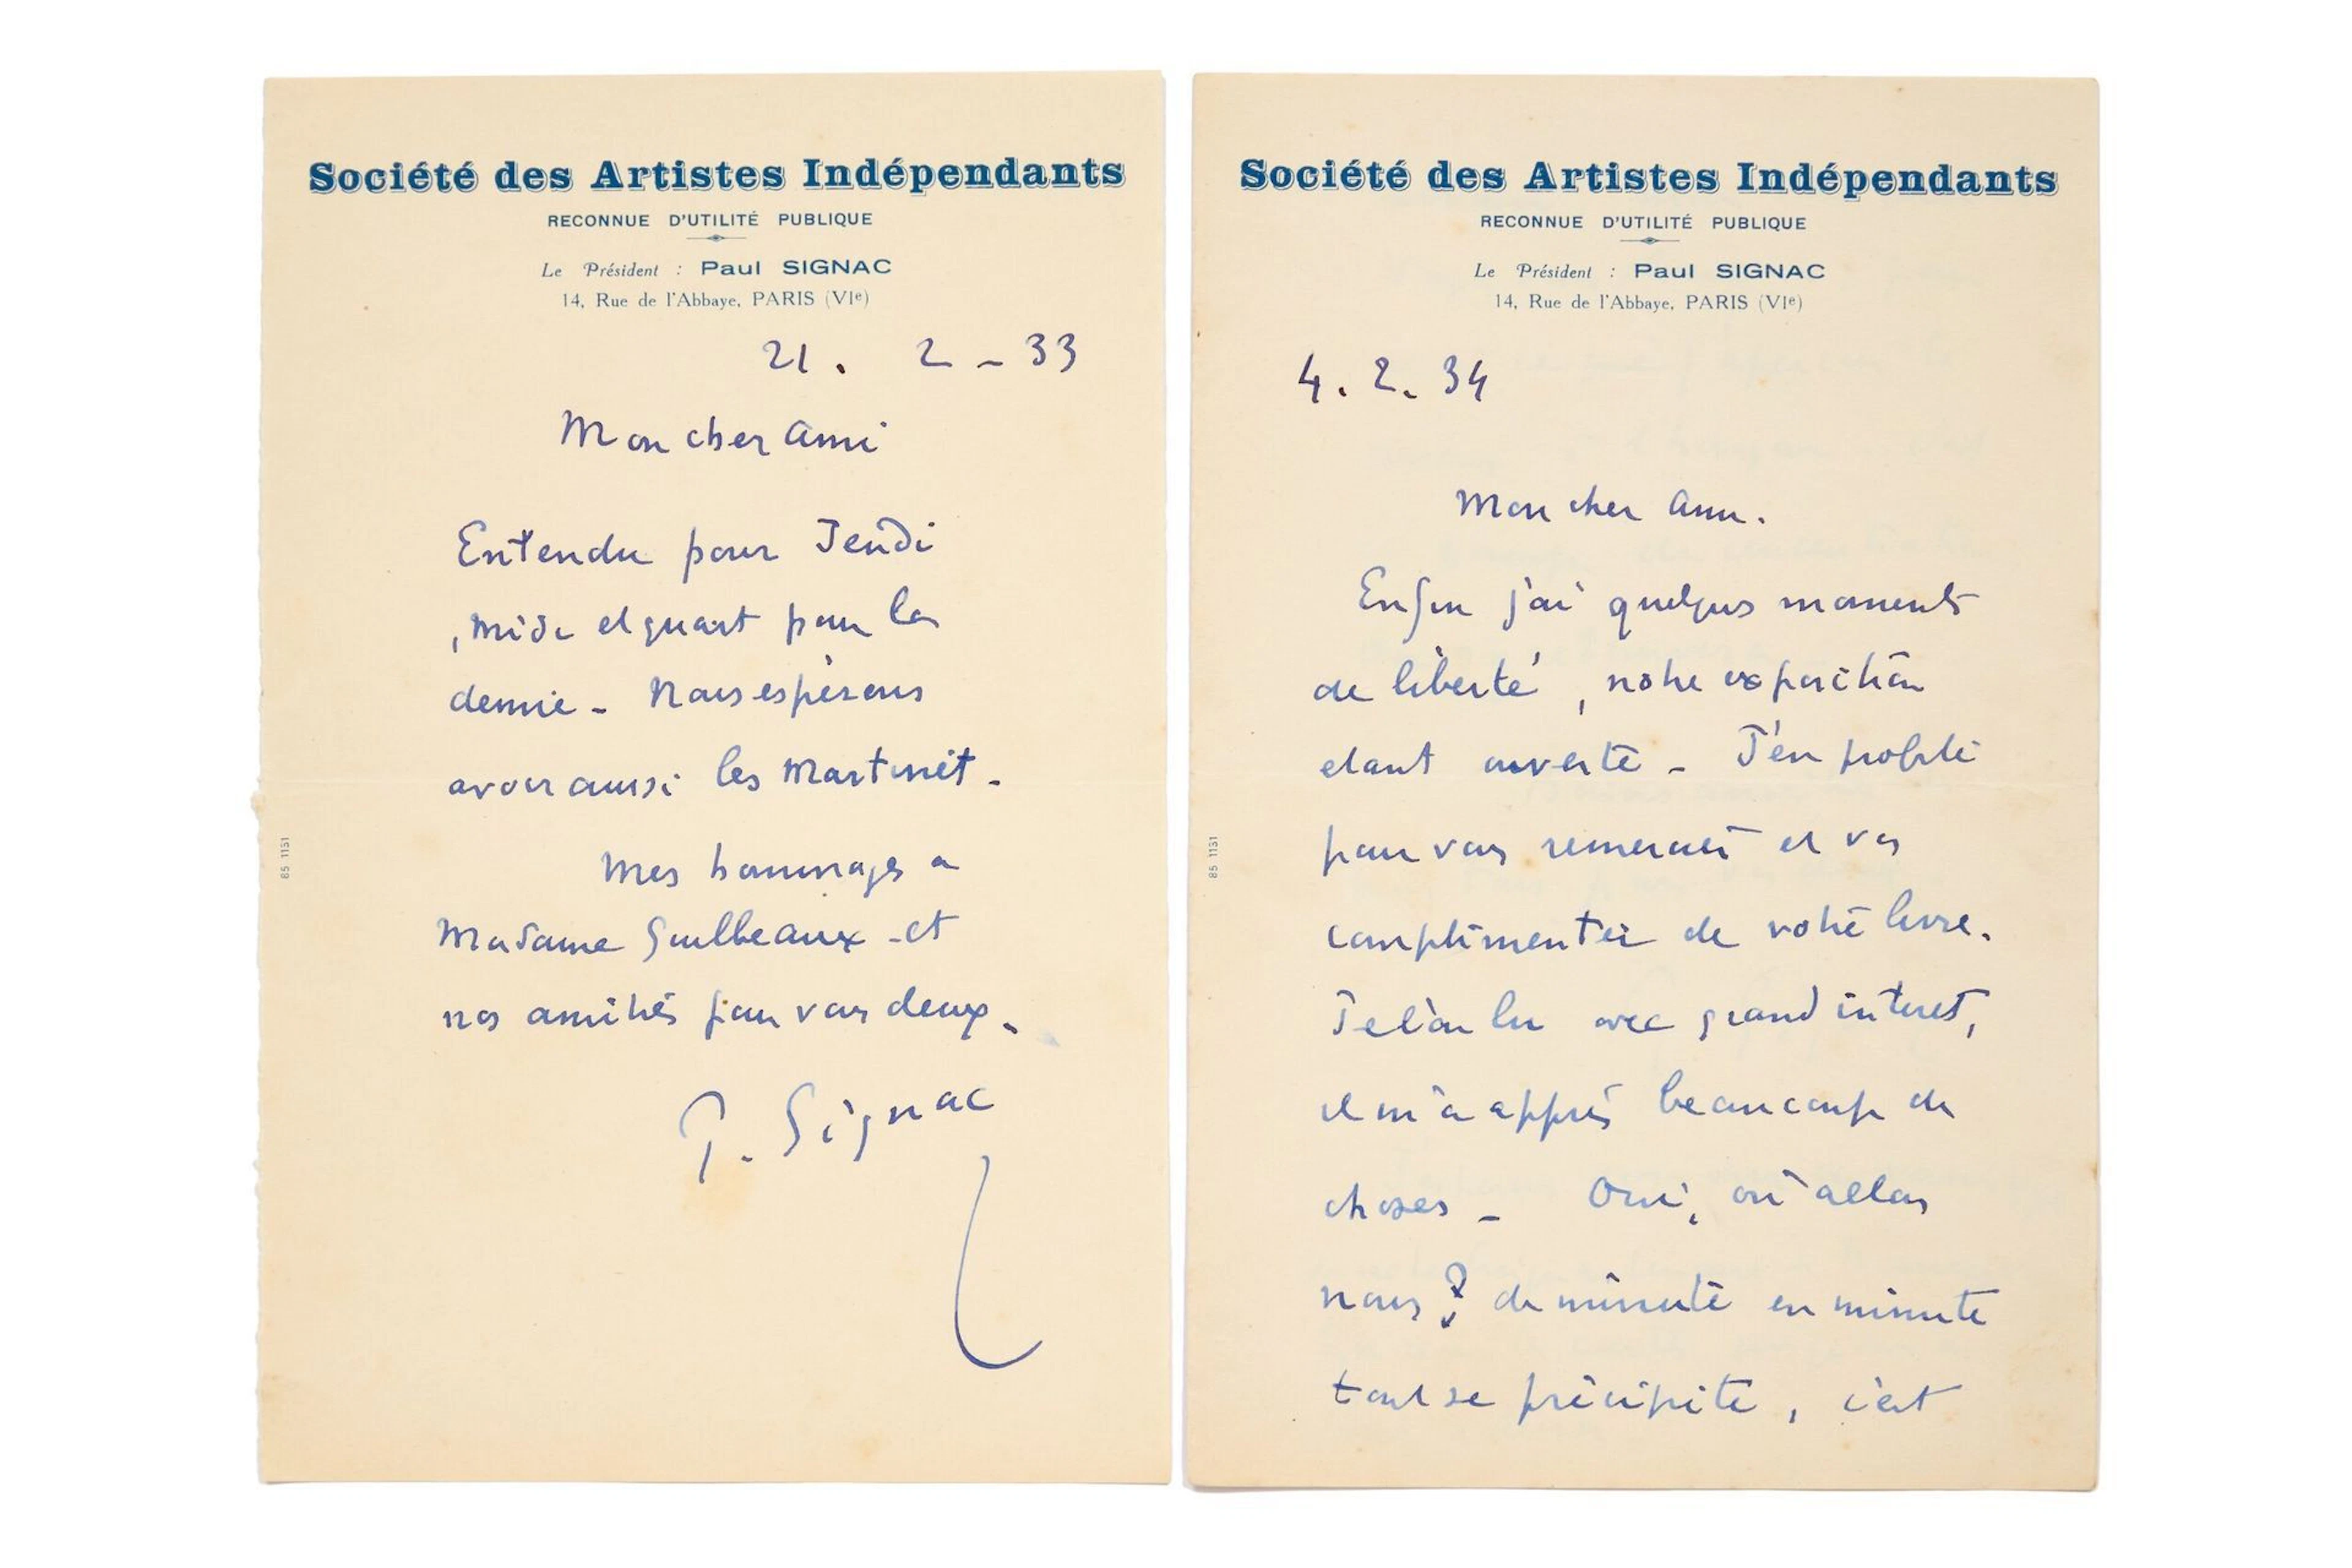 Société des Artistes Indépendants
RECONNUE D'UTILITÉ PUBLIQUE
Le Président : Paul SIGNAC
14, Rue de l'Abbaye, PARIS (VIe)
21. 2 - 33
Mon cher Ami
Entendu pour Jeudi
, midi et quart pour la
demie - Nous espérons
avoir aussi les Martinet.
Mes hommages a
Madame Guilbeaux - et
nos amitiés pour vous deux.
P. Signac
85 1131
Société des Artistes Indépendants
RECONNUE D'UTILITÉ PUBLIQUE
Le Président : Paul SIGNAC
14, Rue de l'Abbaye, PARIS (VIe)
4. 2. 34
Mon cher Ami.
Enfin j'ai quelques moments
de liberté, notre exposition
etant ouverte - J'en profite
pour vous remercier et vous
complimenter de votre livre.
Je l'ai lu avec grand interet,
il m'a appris beaucoup de
choses - Oui, où allons
nous ? de minute en minute
tout se précipite, c'est
85 1131